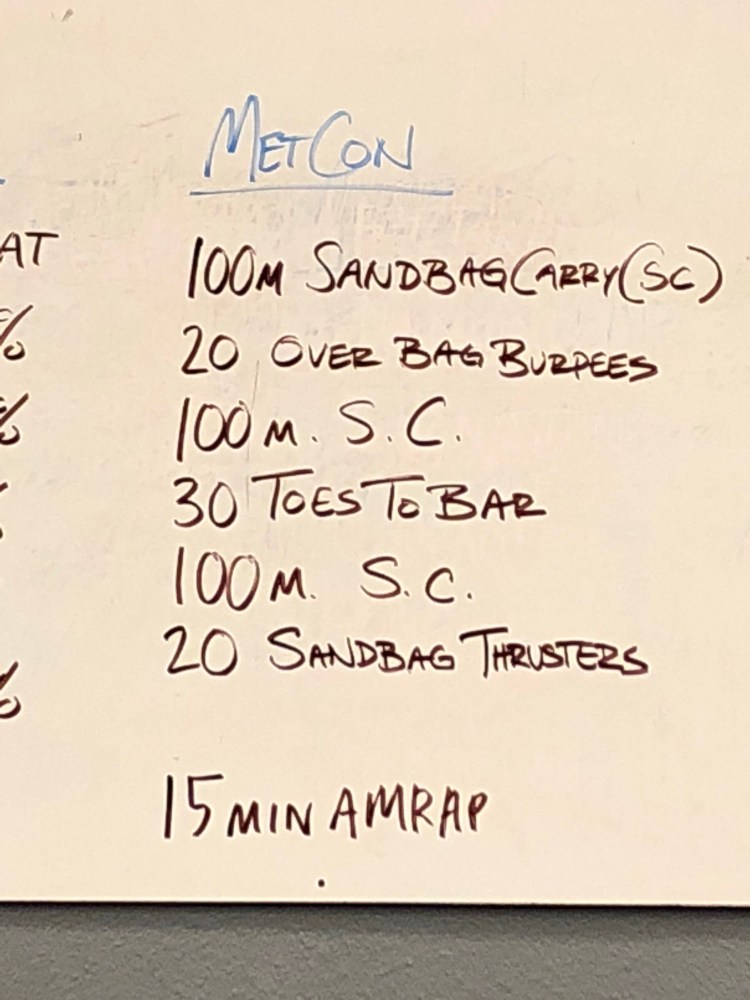 MetCon
AT
100M SANDBAG CARRY (SC)
%
20 OVER BAG BURPEES
%
100 M. S.C.
30 TOES TO BAR
100 M. S.C.
20 SANDBAG THRUSTERS
%
15 MIN AMRAP